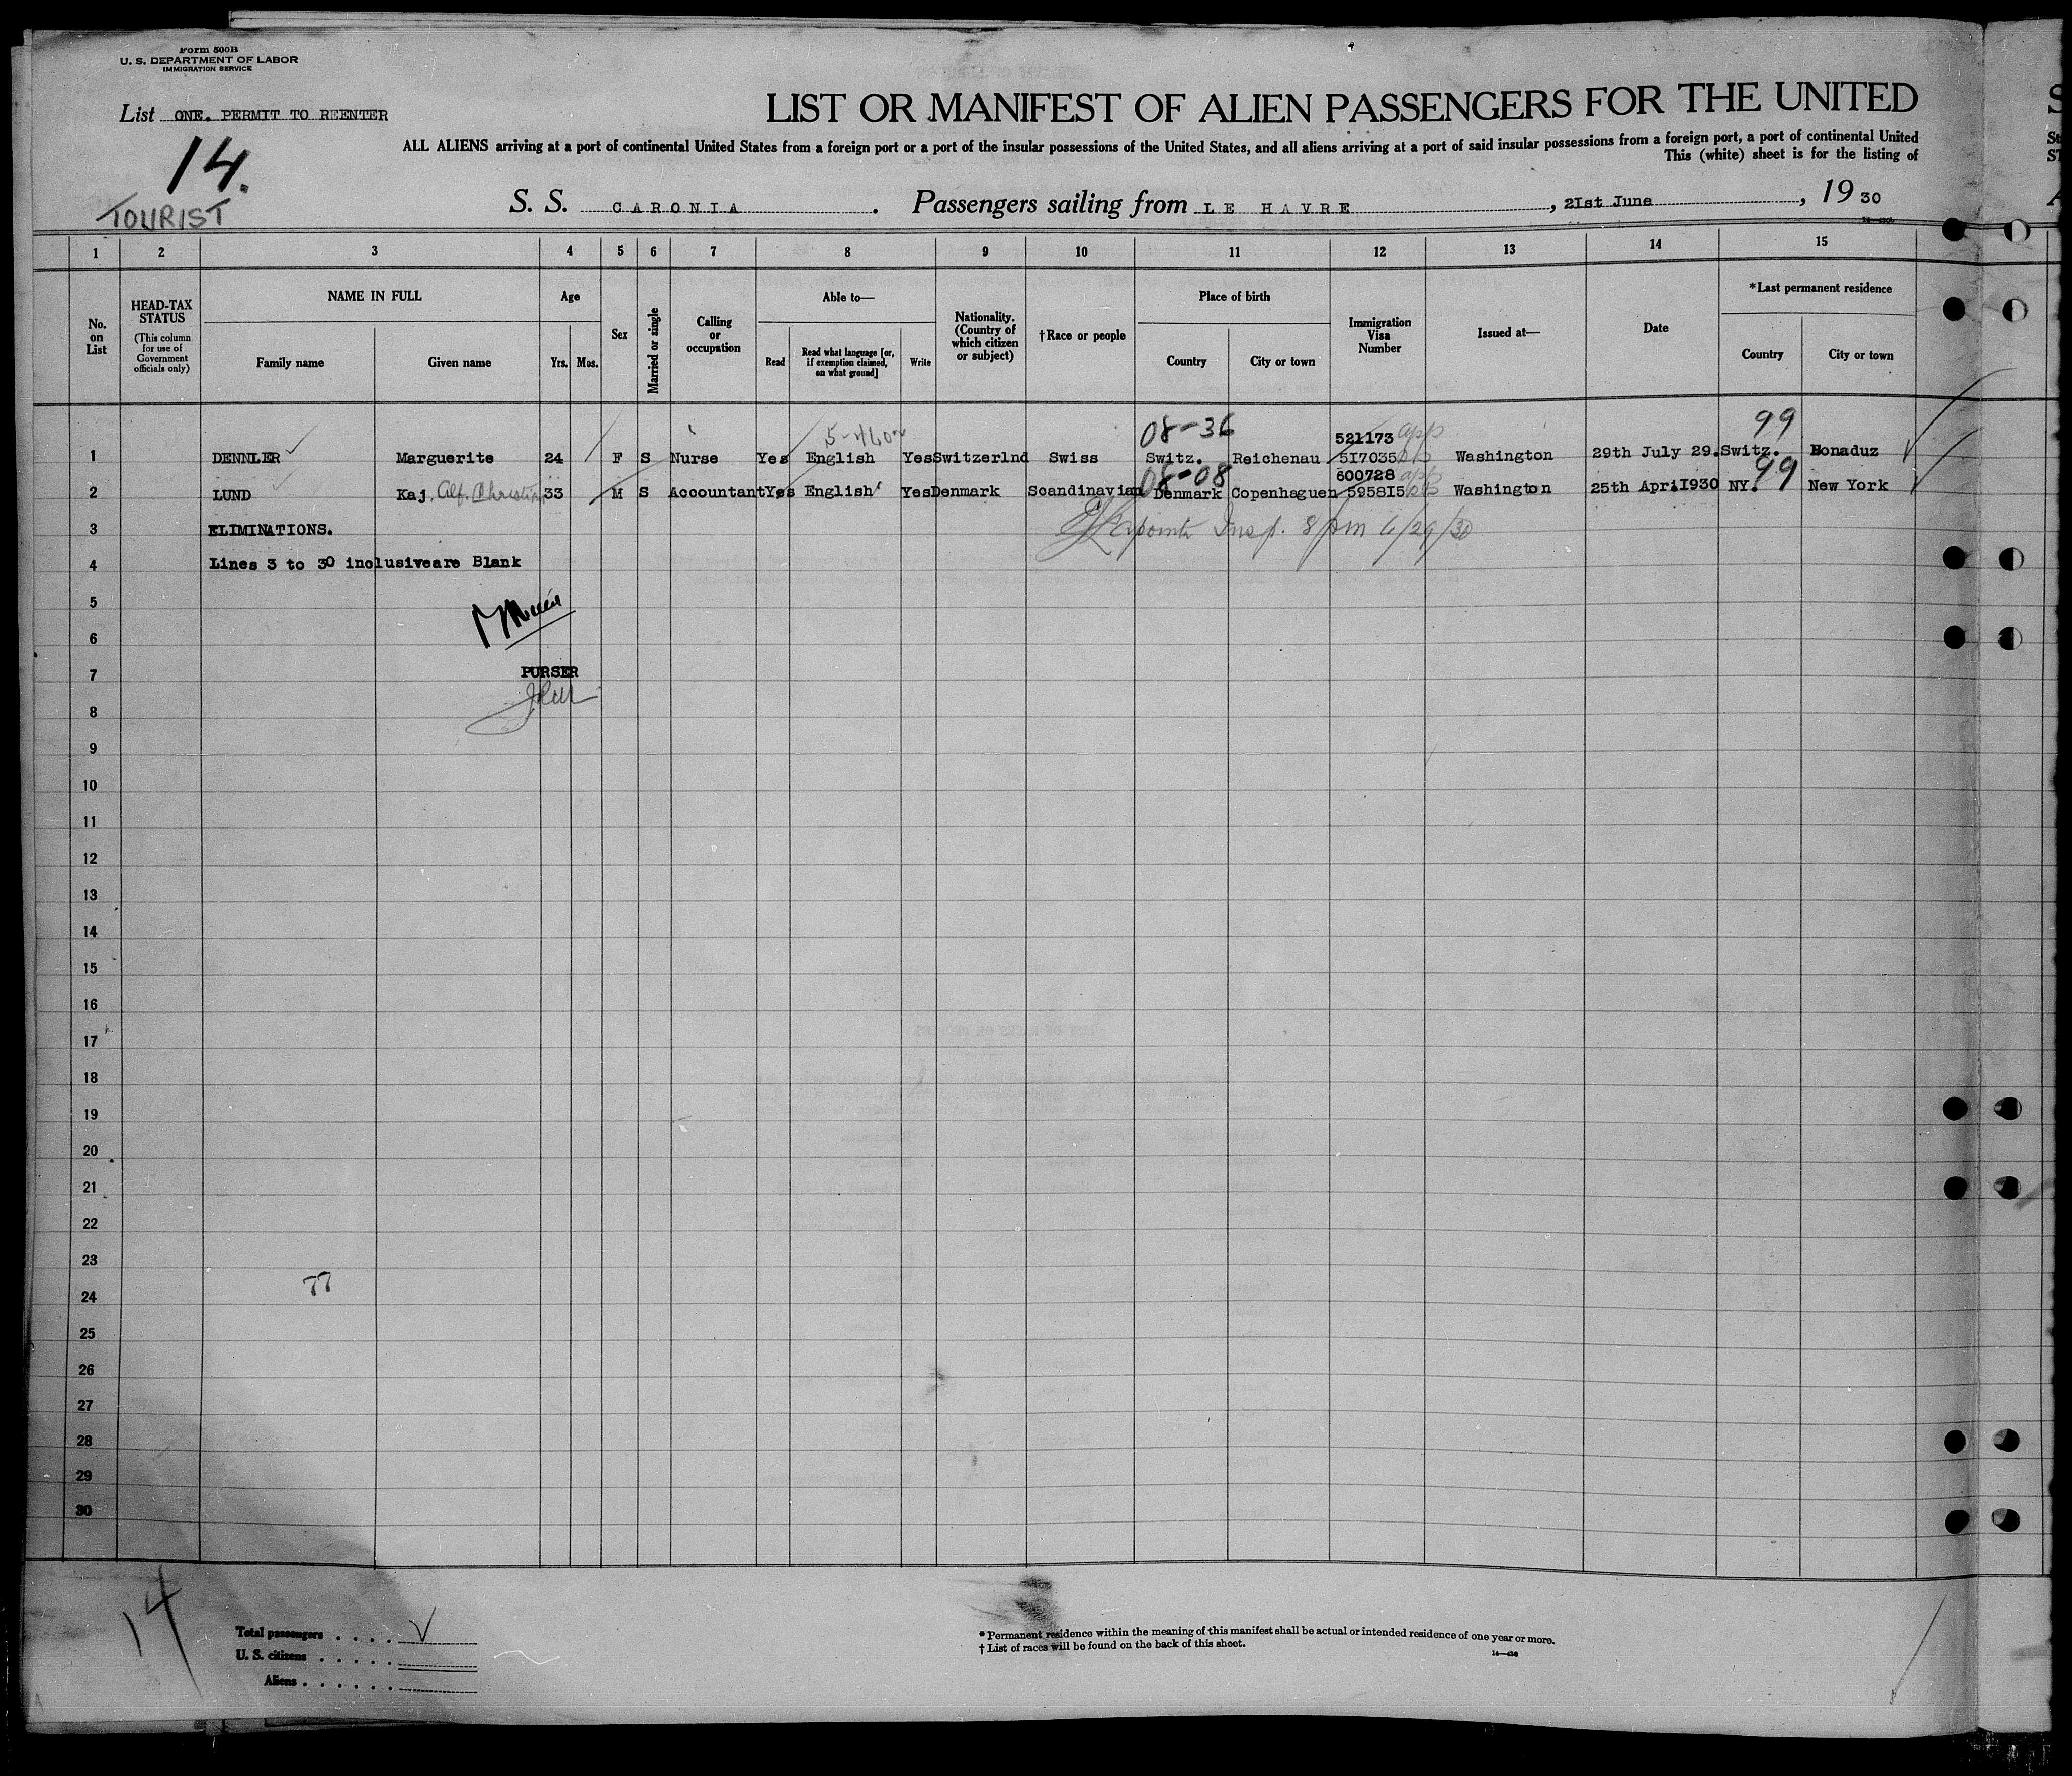 Form 500B
U. S. DEPARTMENT OF LABOR
IMMIGRATION SERVICE
List ONE. PERMIT TO REENTER
14.
TOURIST
LIST OR MANIFEST OF ALIEN PASSENGERS FOR THE UNITED
ALL ALIENS arriving at a port of continental United States from a foreign port or a port of the insular possessions of the United States, and all aliens arriving at a port of said insular possessions from a foreign port, a port of continental United
This (white) sheet is for the listing of
S. S. CARONIA. Passengers sailing from LE HAVRE, 2Ist June, 1930
1 2 3 4 5 6 7 8 9 10 11 12 13 14 15
No. on List
HEAD-TAX STATUS
(This column for use of Government officials only)
NAME IN FULL
Family name Given name
Age
Yrs. Mos.
Sex
Married or single
Calling or occupation
Able to—
Read
Read what language [or, if exemption claimed, on what ground]
Write
Nationality. (Country of which citizen or subject)
†Race or people
Place of birth
Country City or town
Immigration Visa Number
Issued at—
Date
*Last permanent residence
Country City or town
08-36 521173 app 99
1 DENNLER Marguerite 24 F S Nurse Yes English Yes Switzerlnd Swiss Switz. Reichenau 5I7035 Washington 29th July 29. Switz. Bonaduz
08-08 600728 app 99
2 LUND Kaj. Alf. Christian 33 M S Accountant Yes English Yes Denmark Scandinavian Denmark Copenhaguen 5958I5 Washington 25th April1930 NY. New York
3 ELIMINATIONS.
Lapointe Insp. 8 pm 6/29/30
4 Lines 3 to 30 inclusiveare Blank
5
6
7 PURSER
8
9
10
11
12
13
14
15
16
17
18
19
20
21
22
23
77
24
25
26
27
28
29
30
14
Total passengers
U. S. citizens
Aliens
* Permanent residence within the meaning of this manifest shall be actual or intended residence of one year or more.
† List of races will be found on the back of this sheet.